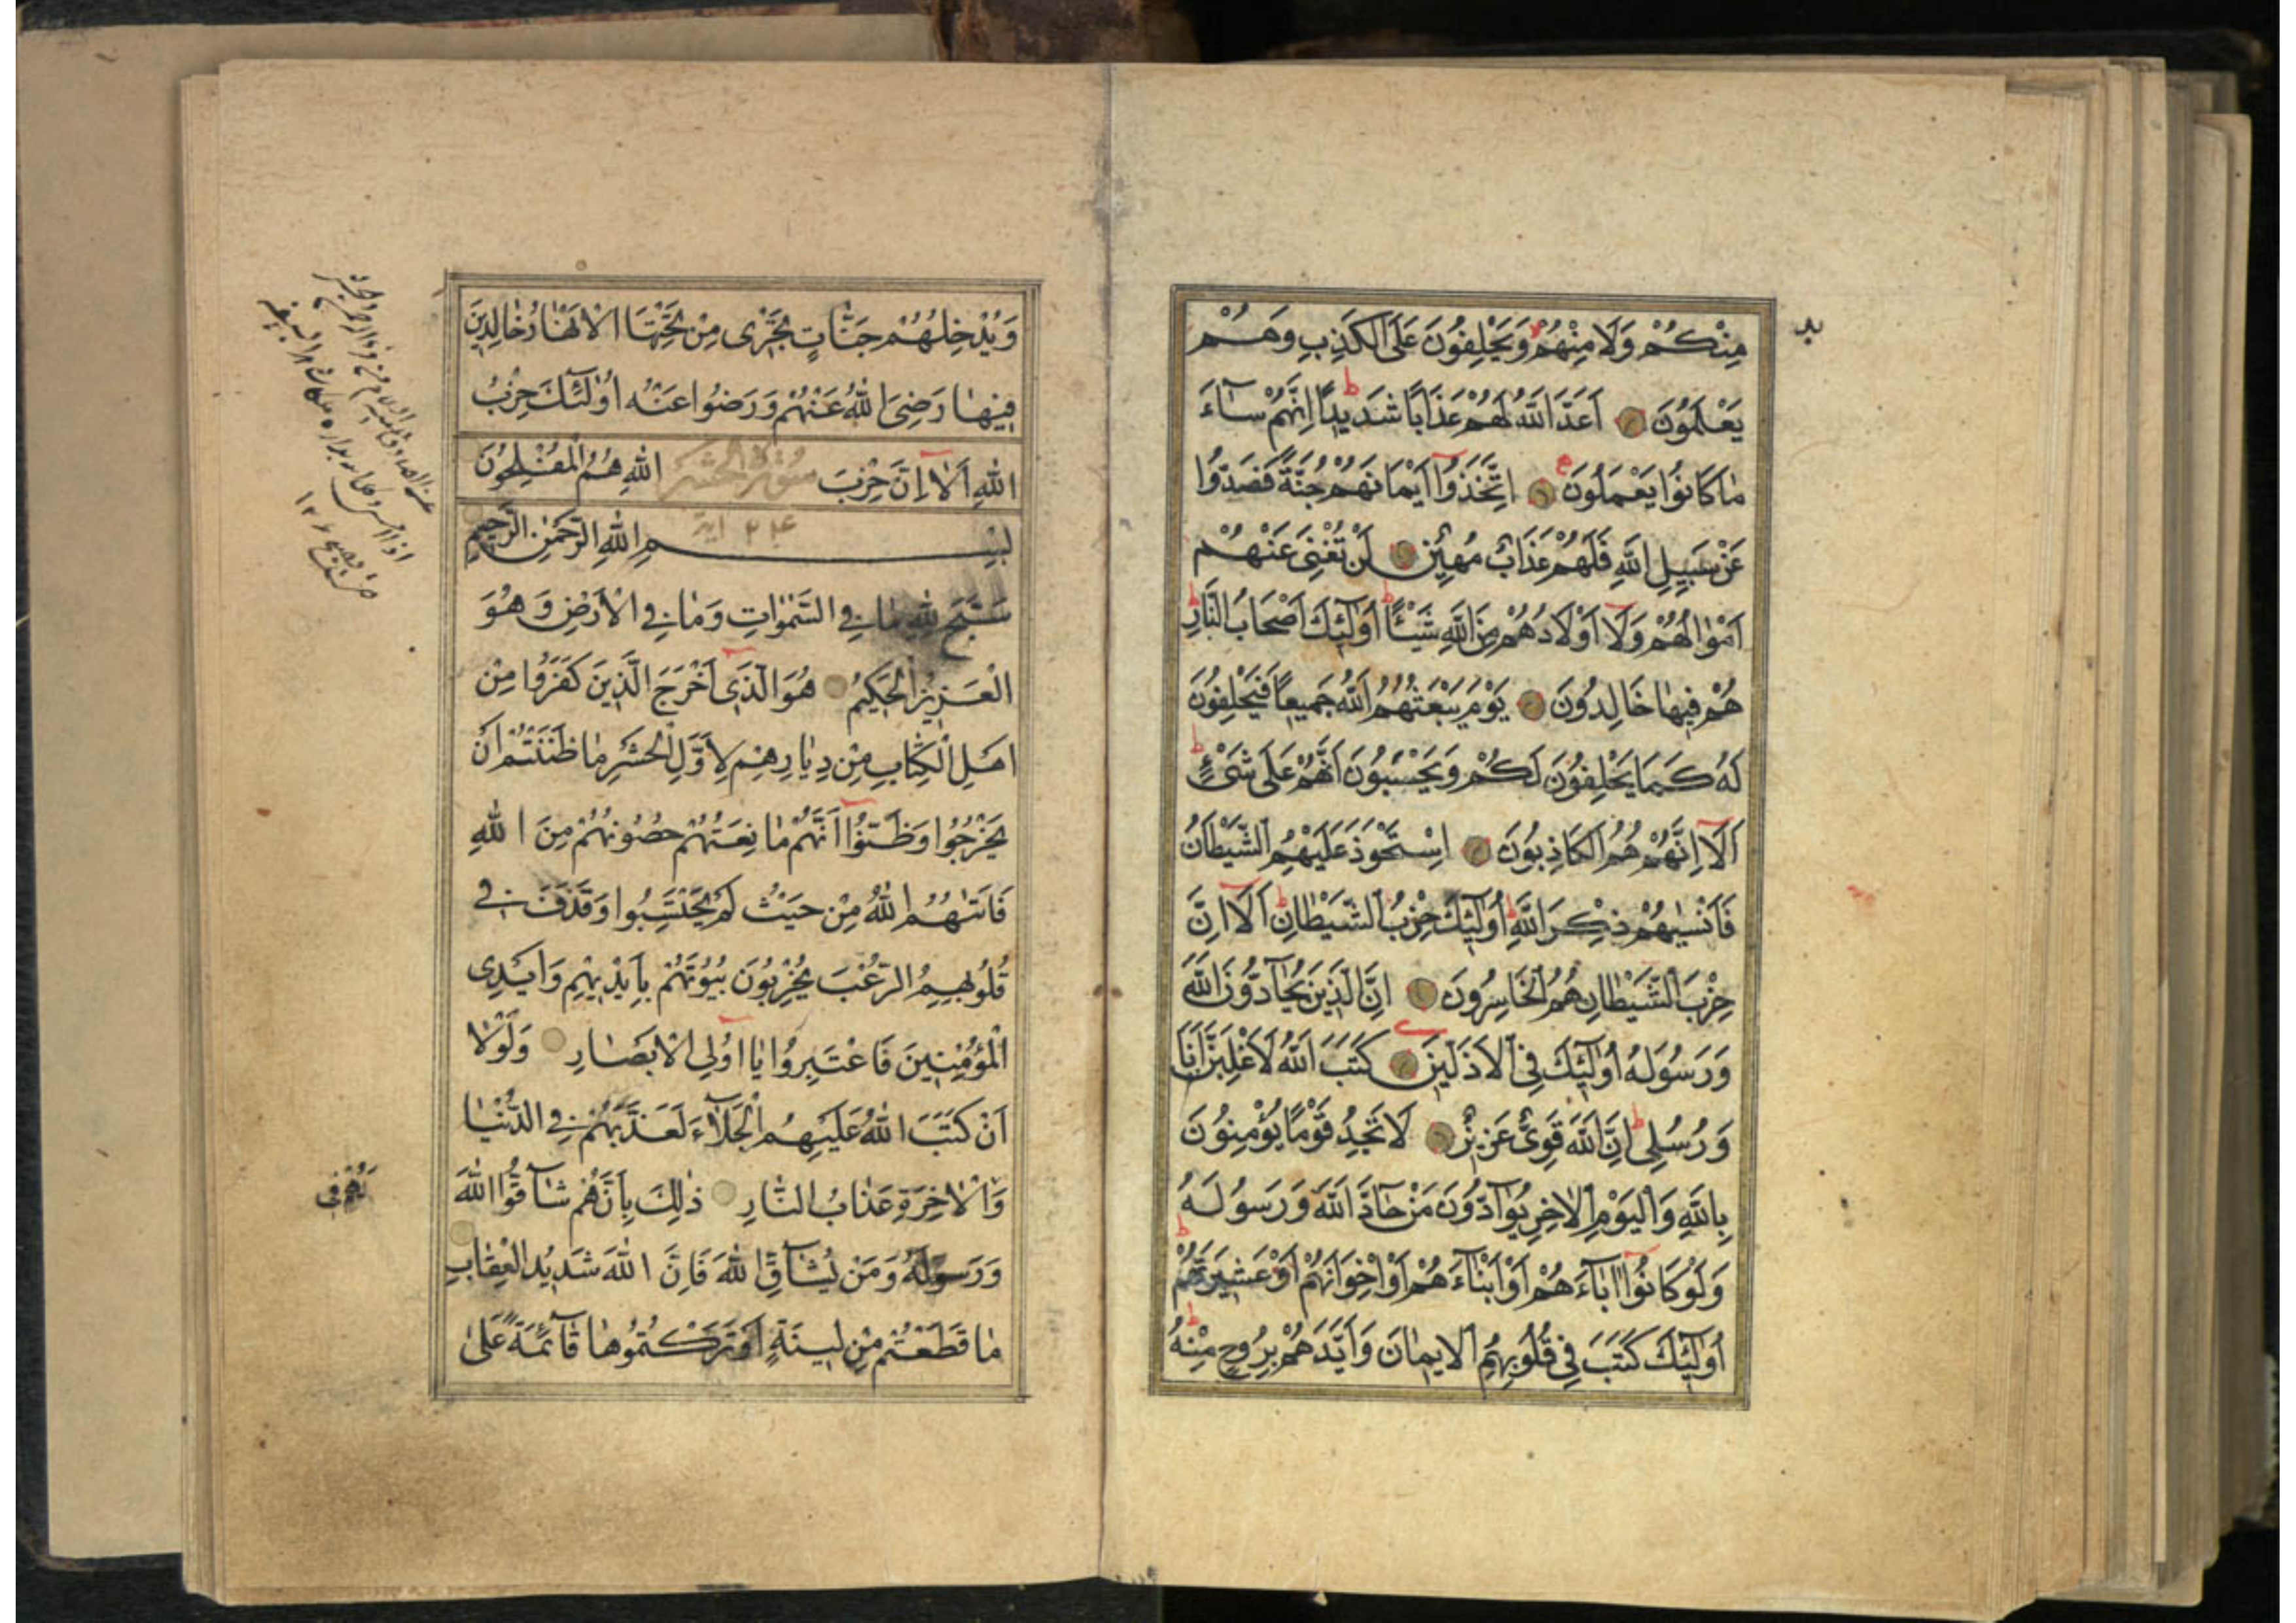 مِنْكُمْ وَلَا مِنْهُمْ وَيَحْلِفُونَ عَلَى الْكَذِبِ وَهُمْ
يَعْلَمُونَ اَعَدَّ اللَّهُ لَهُمْ عَذَابًا شَدِيدًا اِنَّهُمْ سَآءَ
مَا كَانُوا يَعْمَلُونَ اِتَّخَذُوٓا اَيْمَانَهُمْ جُنَّةً فَصَدُّوا
عَنْ سَبِيلِ اللَّهِ فَلَهُمْ عَذَابٌ مُهِينٌ لَنْ تُغْنِىَ عَنْهُمْ
اَمْوَالُهُمْ وَلَآ اَوْلَادُهُمْ مِنَ اللَّهِ شَيْئًا اُولٰٓئِكَ اَصْحَابُ النَّارِ
هُمْ فِيهَا خَالِدُونَ يَوْمَ يَبْعَثُهُمُ اللَّهُ جَمِيعًا فَيَحْلِفُونَ
لَهُ كَمَا يَحْلِفُونَ لَكُمْ وَيَحْسَبُونَ اَنَّهُمْ عَلَى شَىْءٍ
اَلَآ اِنَّهُمْ هُمُ الْكَاذِبُونَ اِسْتَحْوَذَ عَلَيْهِمُ الشَّيْطَانُ
فَاَنْسٰيهُمْ ذِكْرَ اللَّهِ اُولٰٓئِكَ حِزْبُ الشَّيْطَانِ اَلَآ اِنَّ
حِزْبَ الشَّيْطَانِ هُمُ الْخَاسِرُونَ اِنَّ الَّذِينَ يُحَآدُّونَ اللَّهَ
وَرَسُولَهُ اُولٰٓئِكَ فِى الْاَذَلِّينَ كَتَبَ اللَّهُ لَاَغْلِبَنَّ اَنَا
وَرُسُلِى اِنَّ اللَّهَ قَوِىٌّ عَزِيزٌ لَا تَجِدُ قَوْمًا يُؤْمِنُونَ
بِاللَّهِ وَالْيَوْمِ الْاٰخِرِ يُوَآدُّونَ مَنْ حَآدَّ اللَّهَ وَرَسُولَهُ
وَلَوْ كَانُوٓا اٰبَآءَهُمْ اَوْ اَبْنَآءَهُمْ اَوْ اِخْوَانَهُمْ اَوْ عَشِيرَتَهُمْ
اُولٰٓئِكَ كَتَبَ فِى قُلُوبِهِمُ الْاِيمَانَ وَاَيَّدَهُمْ بِرُوحٍ مِنْهُ
وَيُدْخِلُهُمْ جَنَّاتٍ تَجْرٰى مِنْ تَحْتِهَا الْاَنْهَارُ خَالِدِينَ
فِيهَا رَضِىَ اللهُ عَنْهُمْ وَرَضُوا عَنْهُ اُولٰٓئِكَ حِزْبُ
اللهِ اَلَآ اِنَّ حِزْبَ سورة الحشر اللهِ هُمُ الْمُفْلِحُونَ
بِسْمِ اللهِ الرَّحْمٰنِ الرَّحِيمِ
سَبَّحَ لِلّٰهِ مَا فِي السَّمٰوَاتِ وَمَا فِي الْاَرْضِ وَهُوَ
الْعَزِيزُ الْحَكِيمُ هُوَ الَّذِىٓ اَخْرَجَ الَّذِينَ كَفَرُوا مِنْ
اَهْلِ الْكِتَابِ مِنْ دِيَارِهِمْ لِاَوَّلِ الْحَشْرِ مَا ظَنَنْتُمْ اَنْ
يَخْرُجُوا وَظَنُّوٓا اَنَّهُمْ مَانِعَتُهُمْ حُصُونُهُمْ مِنَ اللهِ
فَاَتٰىهُمُ اللهُ مِنْ حَيْثُ لَمْ يَحْتَسِبُوا وَقَذَفَ فِي
قُلُوبِهِمُ الرُّعْبَ يُخْرِبُونَ بُيُوتَهُمْ بِاَيْدِيهِمْ وَاَيْدِى
الْمُؤْمِنِينَ فَاعْتَبِرُوا يَآ اُولِى الْاَبْصَارِ وَلَوْلَا
اَنْ كَتَبَ اللهُ عَلَيْهِمُ الْجَلَآءَ لَعَذَّبَهُمْ فِي الدُّنْيَا
وَلَهُمْ فِي
وَالْاٰخِرَةِ عَذَابُ النَّارِ ذٰلِكَ بِاَنَّهُمْ شَآقُّوا اللهَ
وَرَسُولَهُ وَمَنْ يُشَآقِّ اللهَ فَاِنَّ اللهَ شَدِيدُ الْعِقَابِ
مَا قَطَعْتُمْ مِنْ لِينَةٍ اَوْ تَرَكْتُمُوهَا قَآئِمَةً عَلٰى